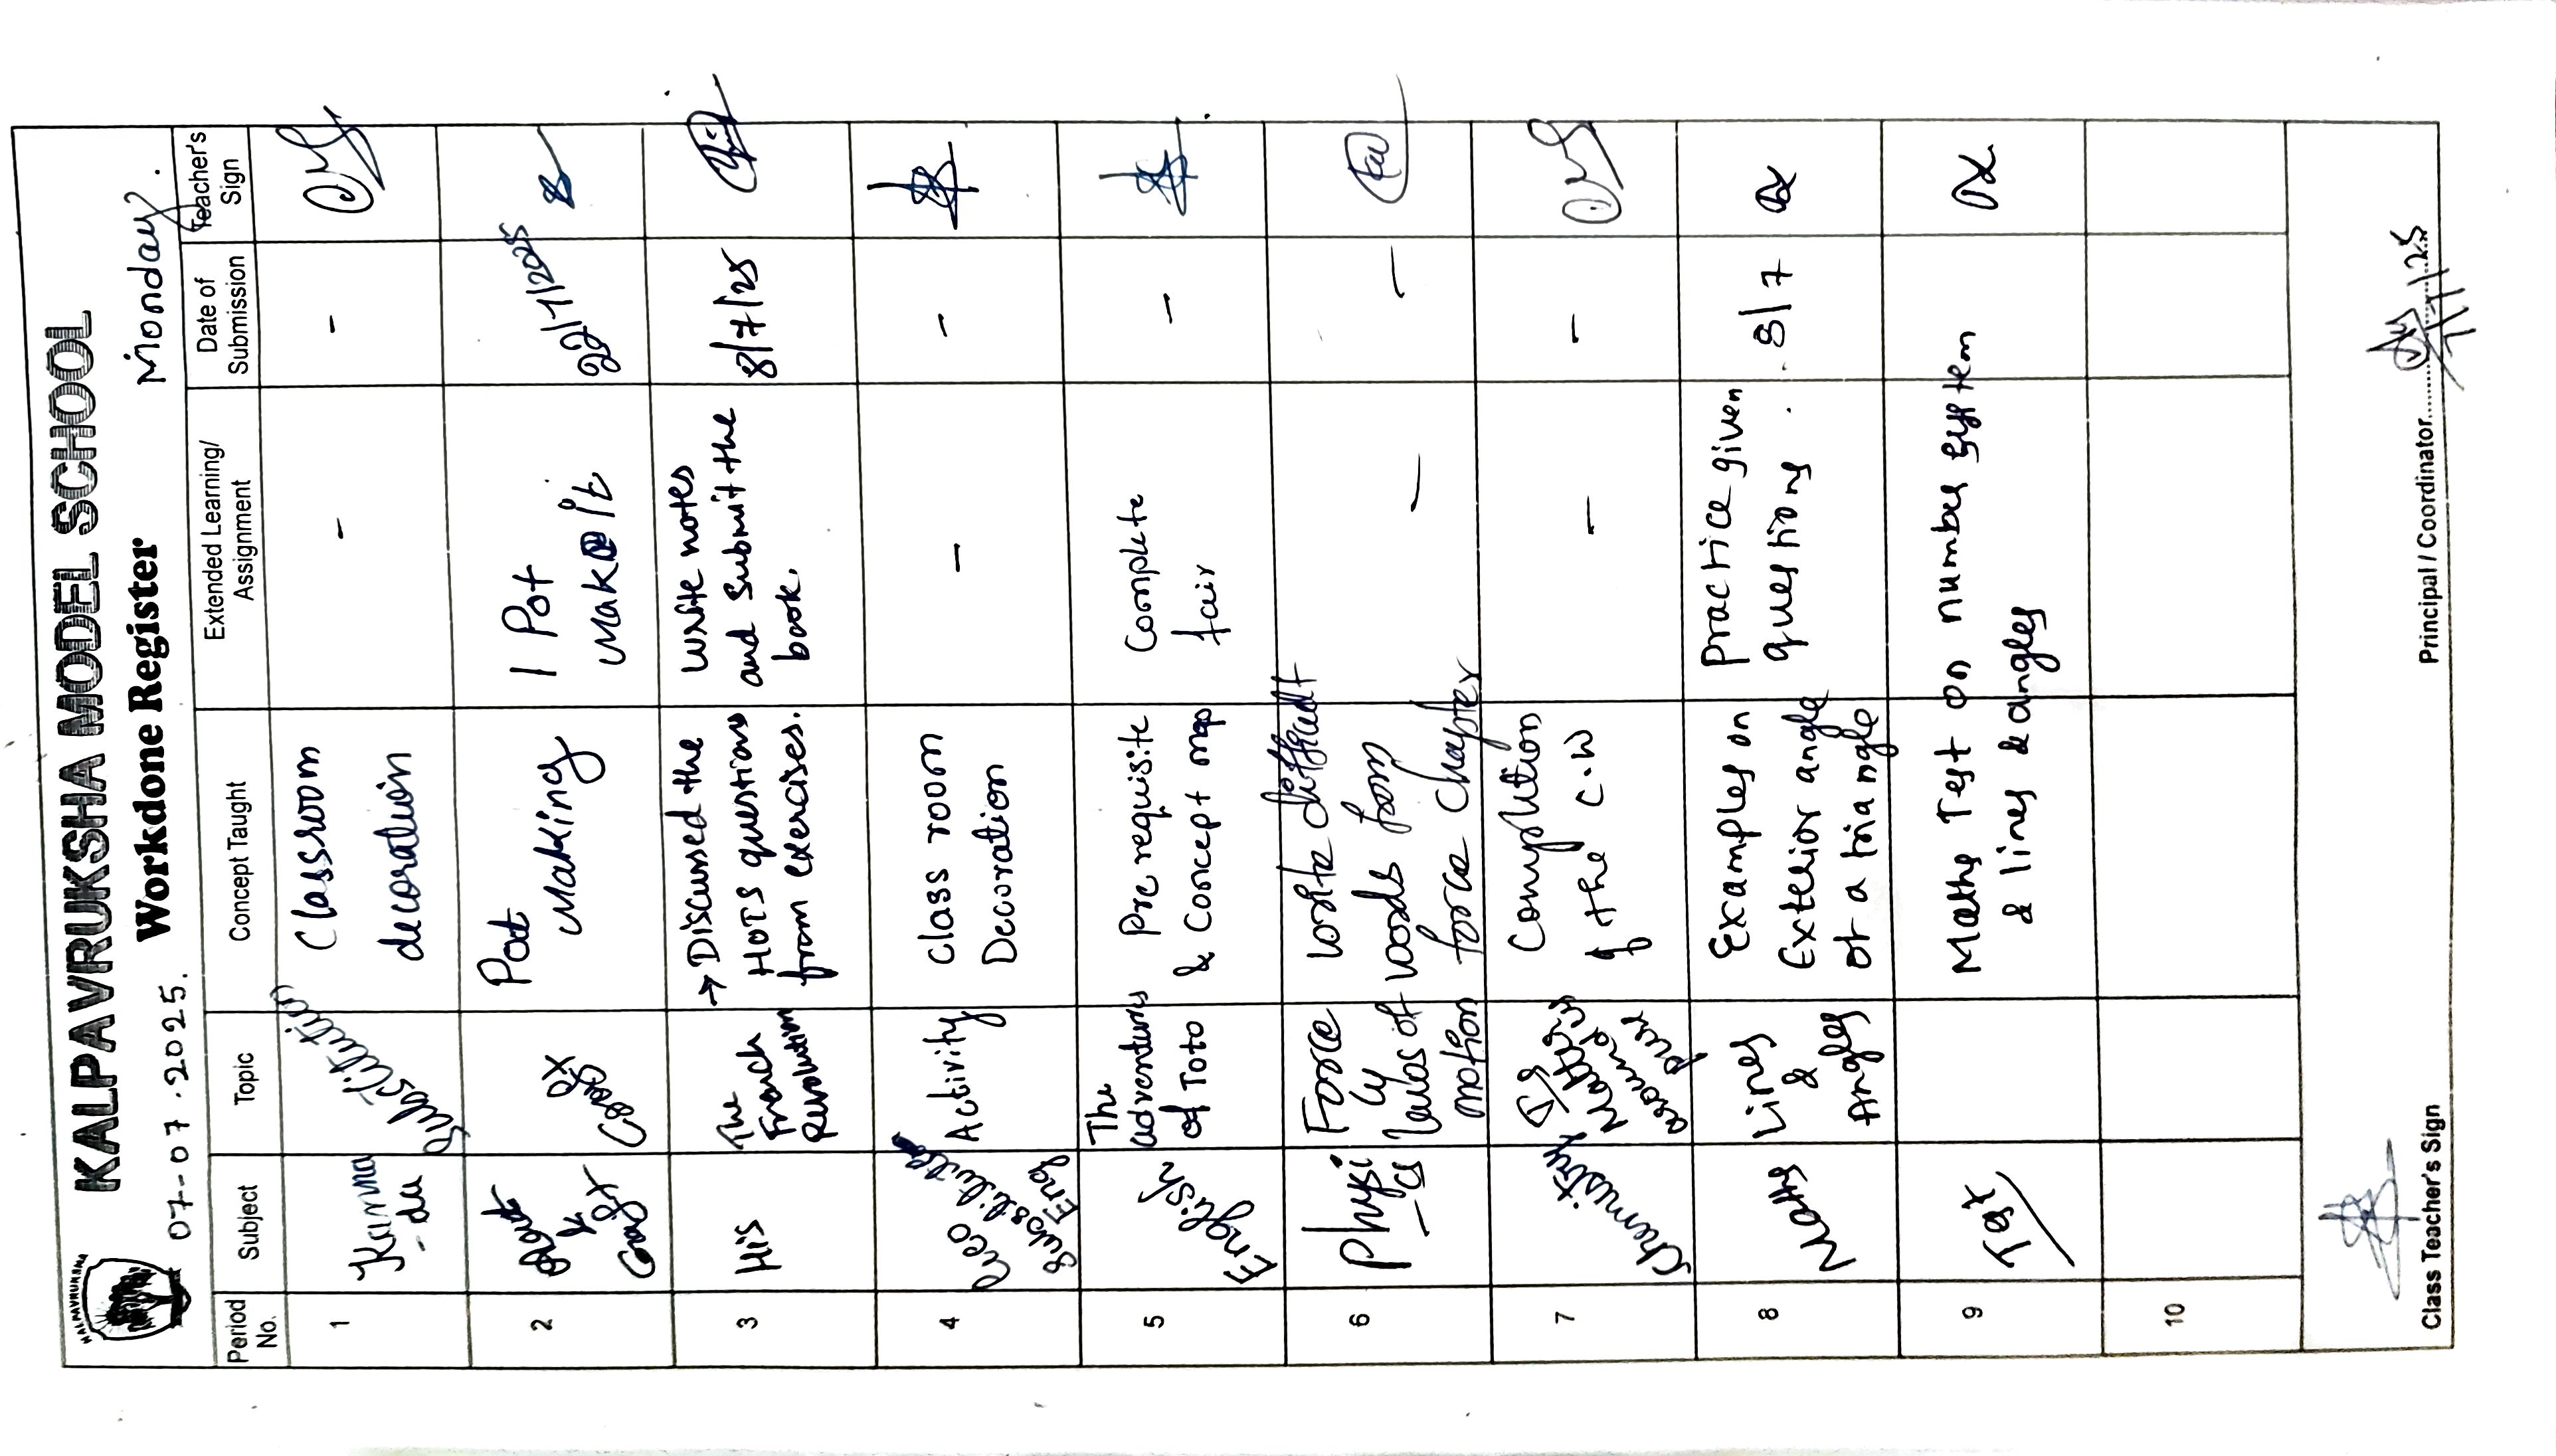 KALPAVRUKSHA
KALPAVRUKSHA MODEL SCHOOL
07-07.2025. Workdone Register Monday.
Period No. Subject Topic Concept Taught Extended Learning/ Assignment Date of Submission Teacher's Sign
1
Kanna
-da
Substitution
Classroom
decoration
-
-
2
&
Craft
Pot
Making
1 Pot
Make it
22/7/2025
3
His
The
French
Revolution
→ Discussed the
HOTS questions
from exercises.
Write notes
and Submit the
book.
8/7/25
4
Eng
Activity
Class room
Decoration
-
-
5
English
The
adventures
of Toto
Pre requisite
& Concept map
Complete
fair
-
6
Physi
-cs
Force
laws of
motion
write difficult
words from
force chapter
-
-
7
Chemistry
Is
Matter
around us
pure
Complition
of the C.W
-
-
8
Maths
Lines
&
Angles
Examples on
Exterior angle
of a triangle
Practice given
questions.
8/7
9
Test
Maths Test on number system
& lines & angles
10
Class Teacher's Sign
Principal / Coordinator
7/7/25